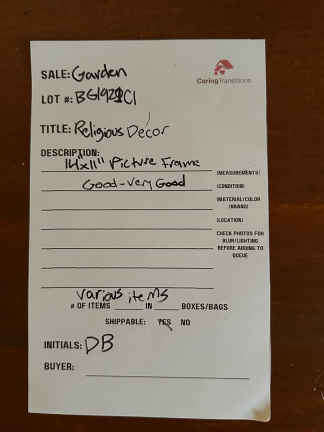 CaringTransitions
SALE: Garden
LOT #:
TITLE: Religious Decor
DESCRIPTION:
14"x11" Picture Frame
(MEASUREMENTS)
Good-Very Good
(CONDITION)
MATERIAL/COLOR
/BRAND)
(LOCATION)
CHECK PHOTOS FOR
BLUR/LIGHTING
BEFORE ADDING TO
QUEUE
various items
# OF ITEMS IN BOXES/BAGS
SHIPPABLE: YES NO
INITIALS: DB
BUYER: